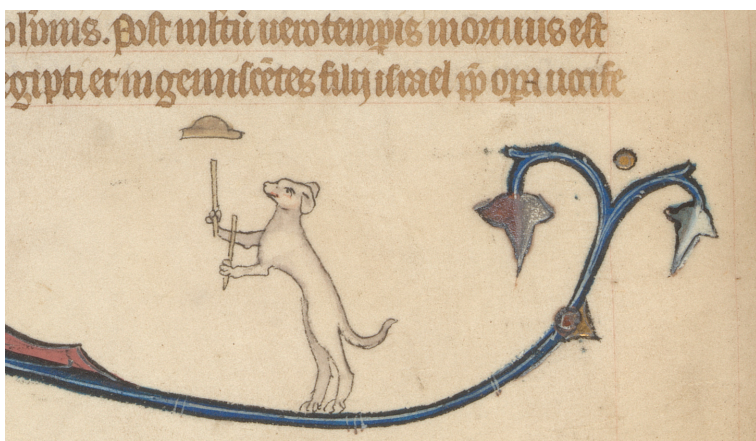 olūnis. Post multū vero tempis mortuus est
egipti et ingemiscētes filij israel pp opa uocife